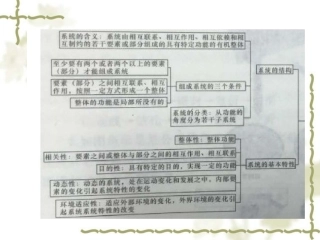 系统的含义:系统由相互联系,相互作用,相互依赖和相
互制约的若干要素或部分组成的具有特定功能的有机整体
至少要有两个或者两个以上的要素
(部分)才能组成系统
要素(部分)之间相互联系、相互
作用,按照一定方式形成一个整体
整体的功能是局部所没有的
组成系统的三个条件
系统的分类:从功能的
角度分为若干子系统
系统的结构
整体性:整体功能
相关性:要素之间或整体与部分之间的相互作用,相互联系
目的性:具有特定的目的,实现一定的功能
动态性:动态的系统,是在运动变化和发展之中,内部要
素的变化引起系统特性的变化
环境适应性:适应外部环境的变化,外界环境的变化引
起系统系统特性的改变
系统的基本特性